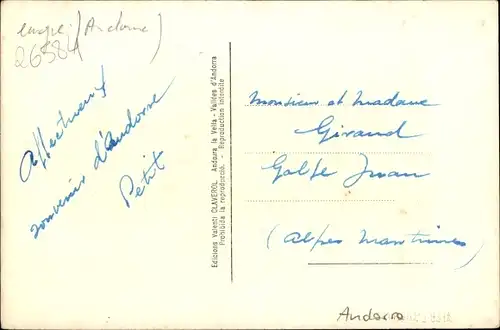 (Andorre)
26584
Affectueux
souvenir d'Andorre
Petit
Edicions Valentí CLAVEROL. Andorra la Vella - Vallées d'Andorra
Prohibida la reproducció. - Reproduction interdite
Monsieur et Madame
Giraud
Golfe Juan
(Alpes Maritimes)
Andorra